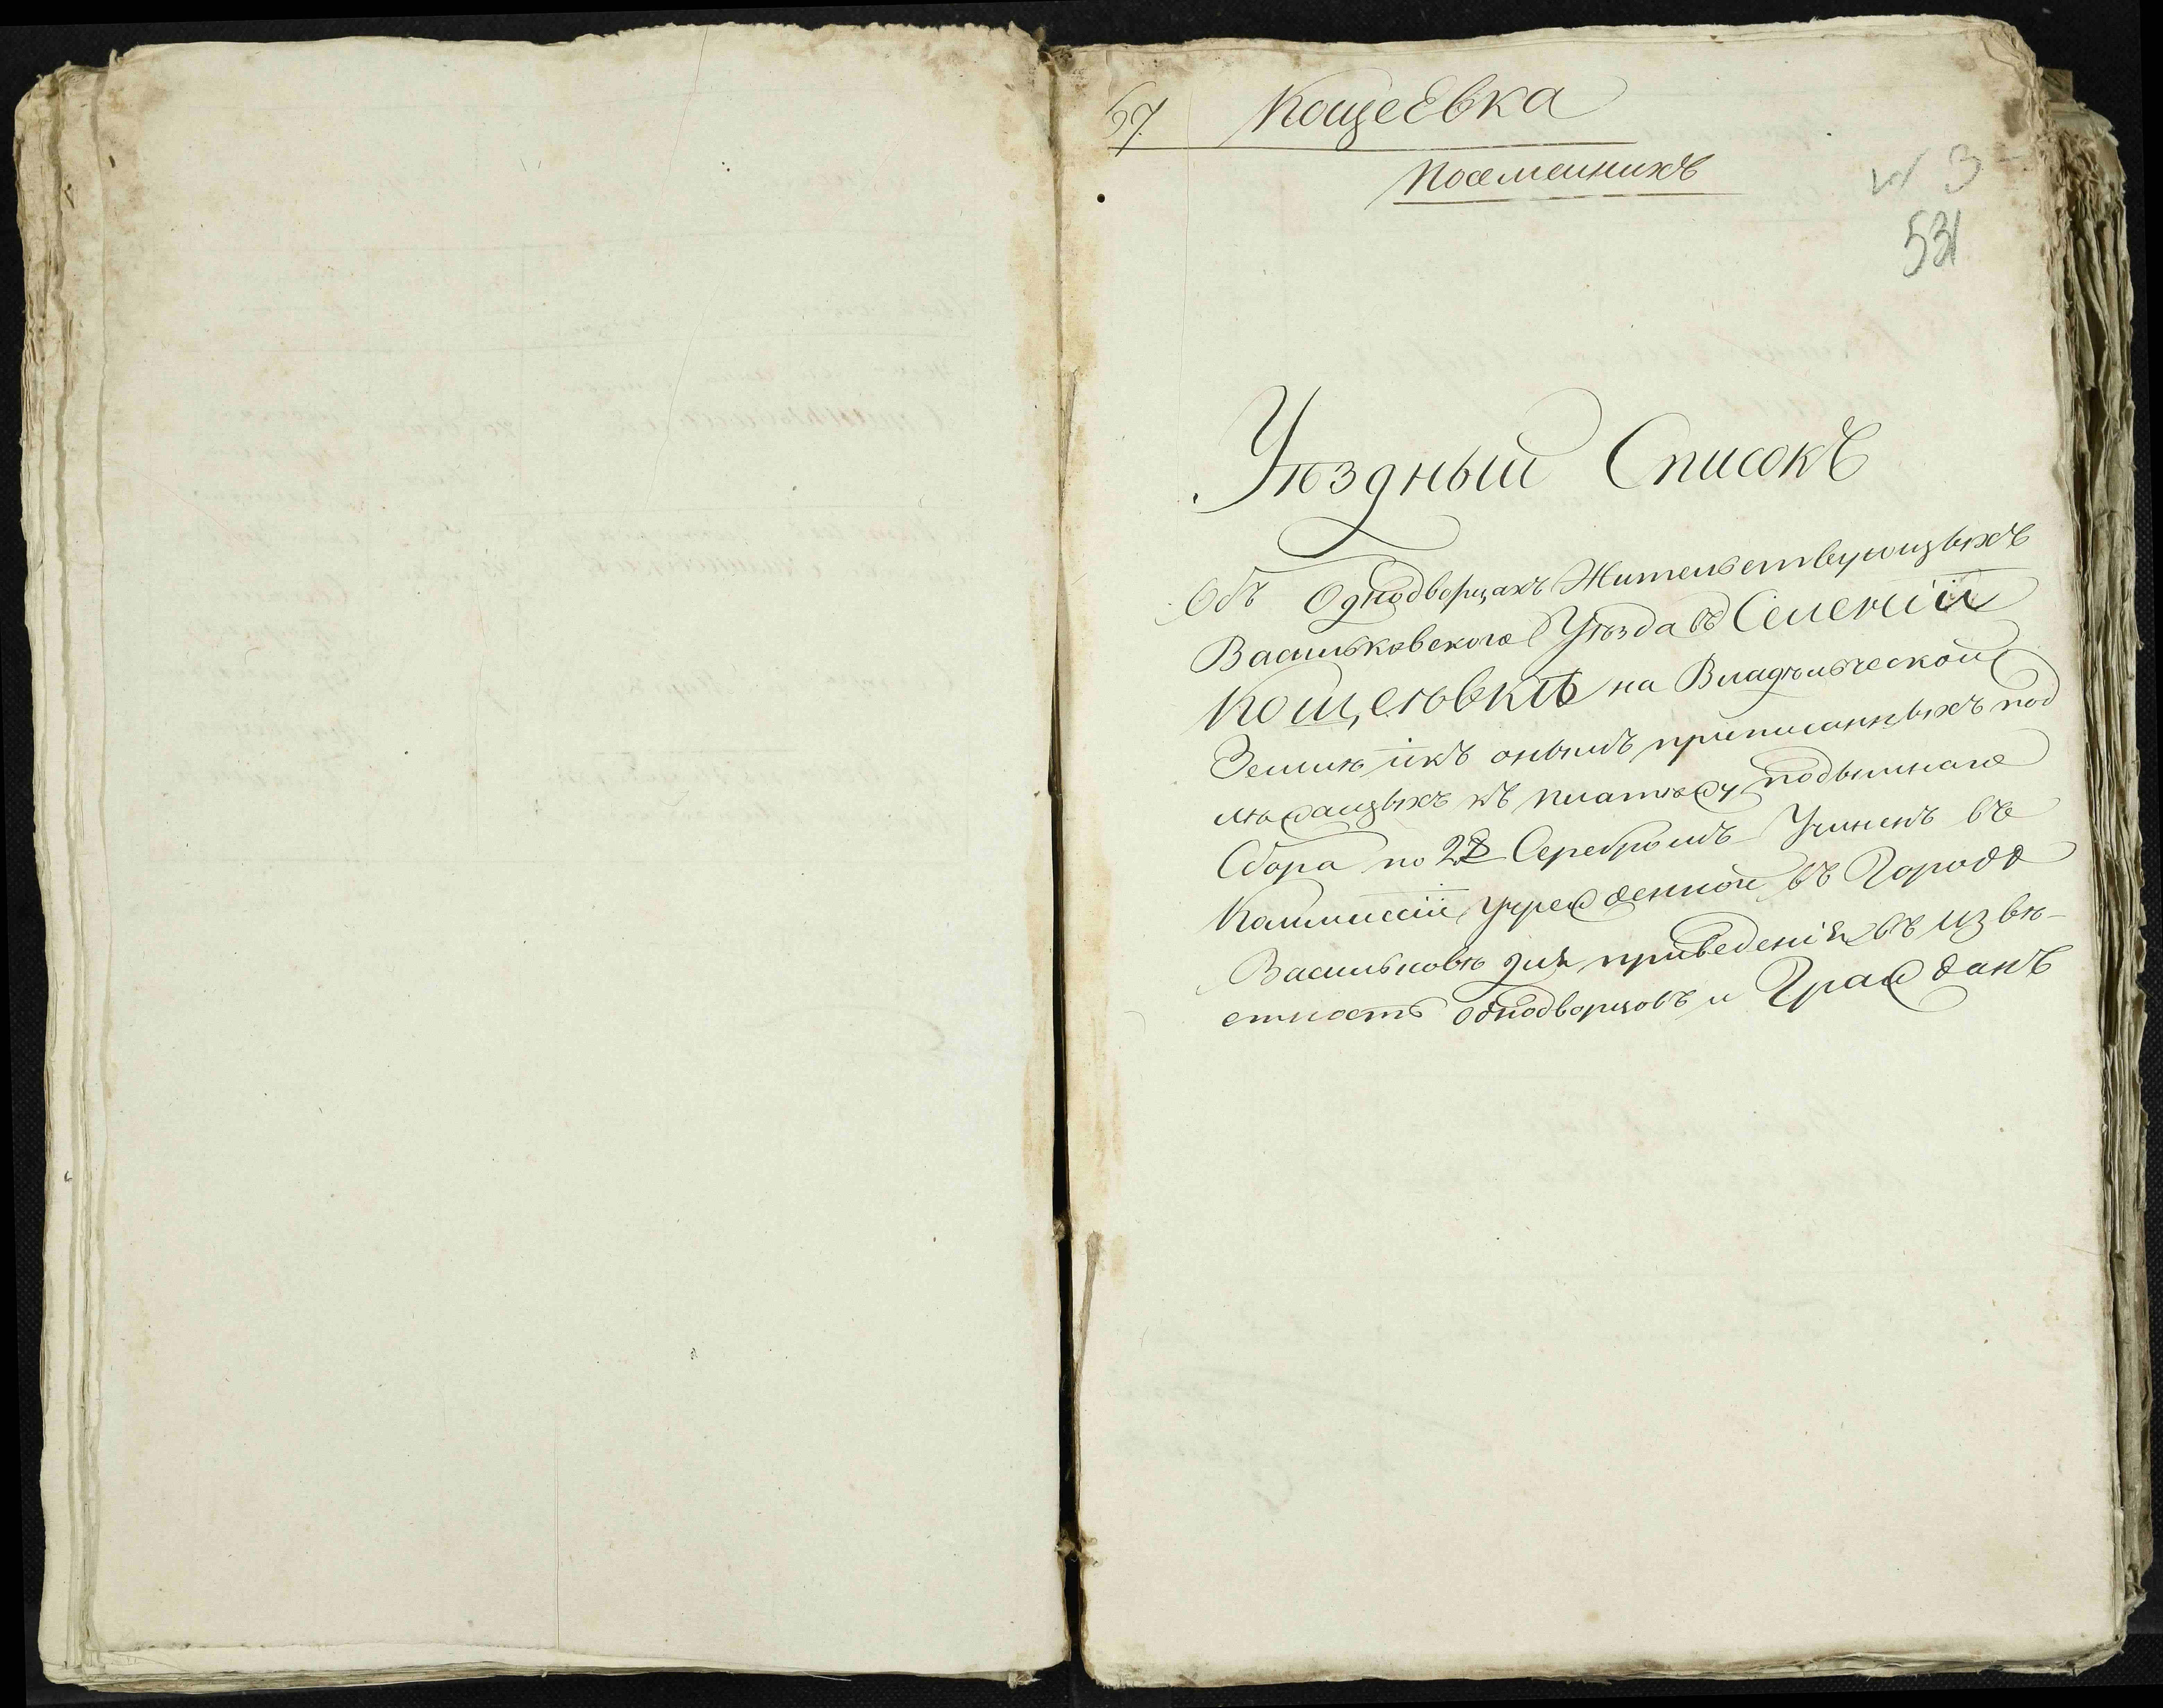 57. КощеЕвка
Поемениковъ
№ 3
531
Уѣздный Списокъ
Объ Однодворцахъ Жительствующыхъ
Васильковского Уѣзда въ Селеніи
Кощеювкѣ на Владѣльческой
Землѣ икъ онымъ приписанныхъ под
лѣжащыхъ къ платежу подымнаго
Сбора по 2 Серебромъ Учиненъ въ
Коммисіи учрежденной въ Городѣ
Васильковѣ для приведенія въ извѣ-
стность однодворцовъ и Гражданъ